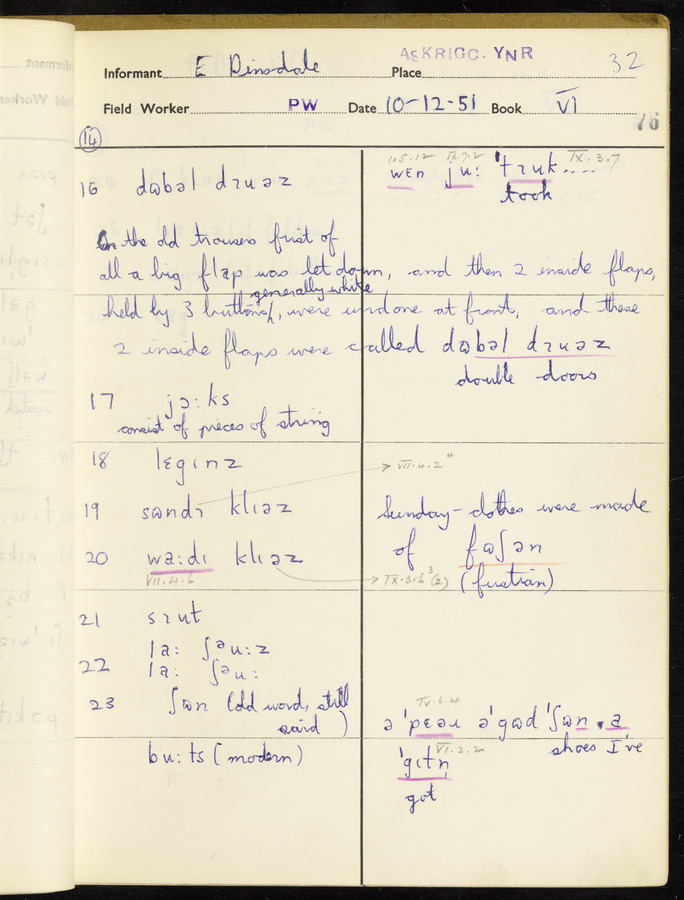 Informant E Dinsdale Place ASKRIGG. YNR 32
Field Worker PW Date 10-12-51 Book VI
76
14
16 dɷbəl dɪuəz
I.5.12 IX.7.2 IX.3.7
wɛn ju: 'tɪuk....
took
On the old trousers first of
all a big flap was let down, and then 2 inside flaps,
generally white
held by 3 buttons, were undone at front, and these
2 inside flaps were called dɷbəl dɪuəz
double doors
17 jɔ:ks
consist of pieces of string
18 lɛgɪnz
VII.4.2
19 sɷndɪ klɪəz
Sunday-clothes were made
20 wa:dɪ klɪəz
of fɷʃən
VII.4.6
IX.3.6 (2) (fustian)
21 sɪut
22 la: ʃəu:z
la: ʃəu:
23 ʃɷn (old word, still
said)
IV.6.4
ə 'pɛəɪ ə 'gɷd 'ʃɷn, a
shoes I've
bu:ts (modern)
VI.2.2
'gɪtn̩
got